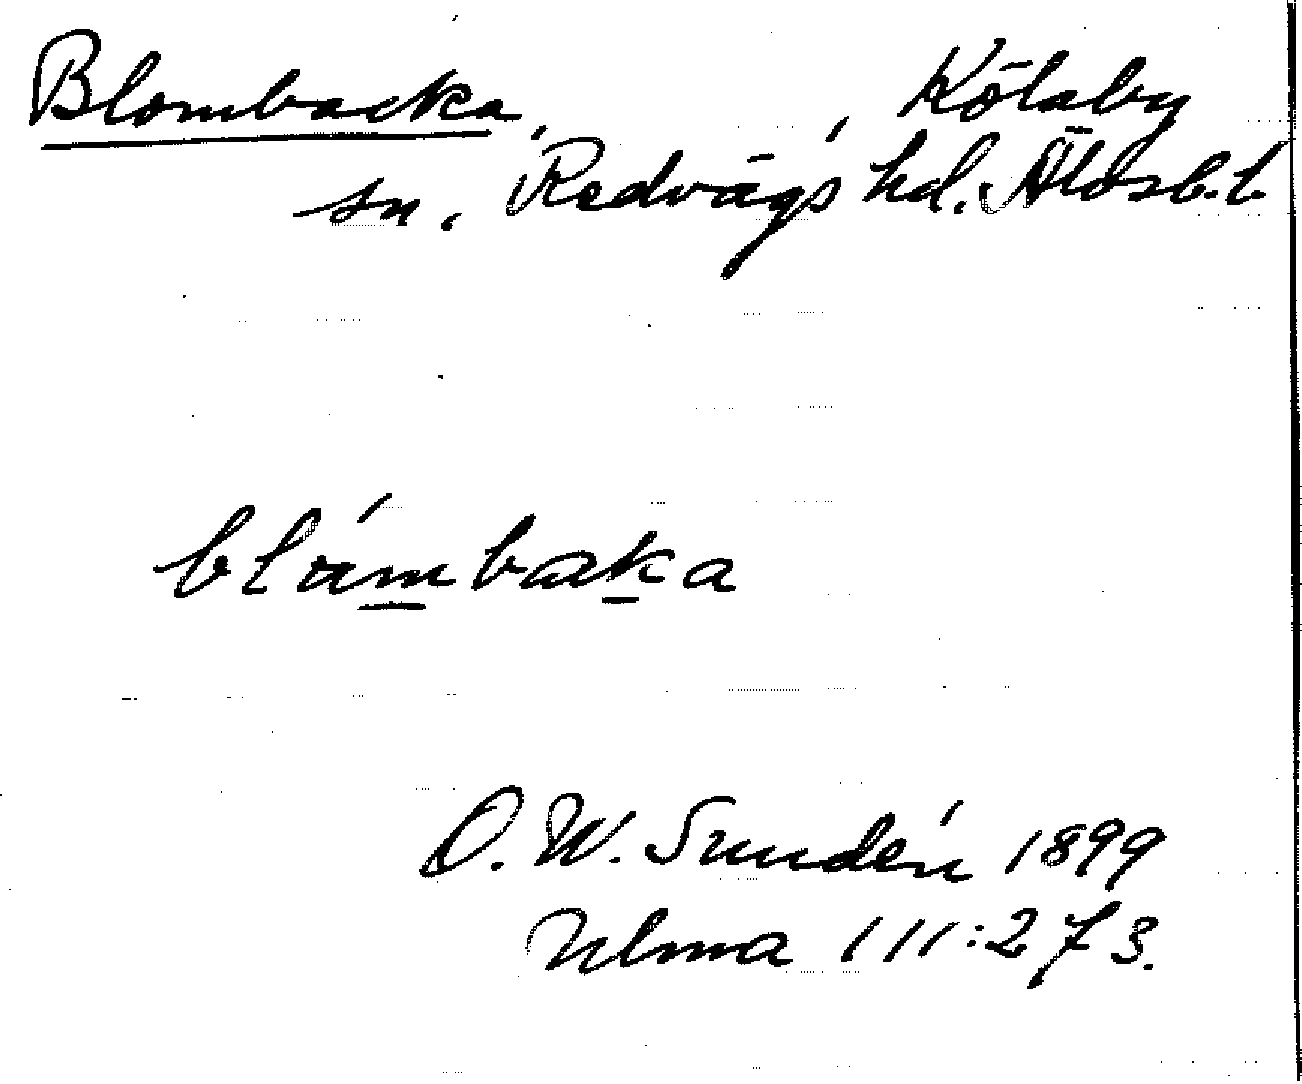 Blombacka, Kölaby
sn. Redvägs hd. Älvsb. l.
blåmbaka
D. W. Sundén 1899
Ulma 111:273.